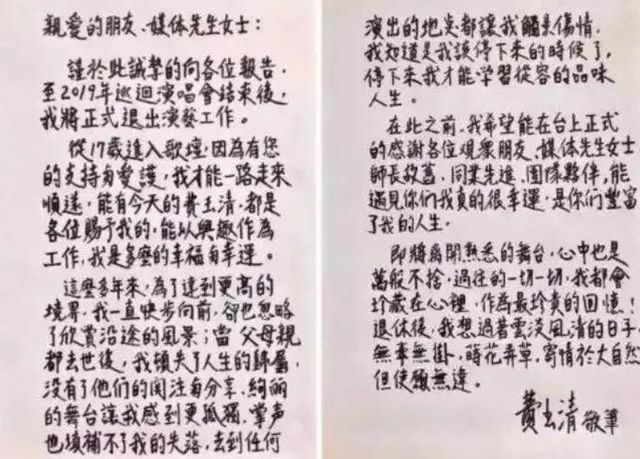 親愛的朋友、媒体先生女士：
謹於此誠摯的向各位報告，
至2019年巡迴演唱會結束後，
我將正式退出演藝工作。
從17歲進入歌壇，因為有您
的支持與愛護，我才能一路走來
順遂，能有今天的費玉清，都是
各位賜予我的，能以興趣作為
工作，我是多麼的幸福與幸運。
這麼多年來，為了達到更高的
境界，我一直快步向前，卻也忽略
了欣賞沿途的風景；當父母親
都去世後，我頓失了人生的歸屬，
沒有了他們的関注與分享，絢麗
的舞台讓我感到更孤獨，掌声
也填補不了我的失落，去到任何
演出的地点都讓我觸景傷情，
我知道是我該停下來的時候了，
停下來我才能学習從容的品味
人生。
在此之前，我希望能在台上正式
的感謝各位观眾朋友、媒体先生女士
師長故舊、同業先進、团隊夥伴，能
遇見你們我真的很幸運，是你們豐富
了我的人生。
即將離開熟悉的舞台，心中也是
萬般不捨，過往的一切一切，我都會
珍藏在心裡，作為最珍貴的回憶！
退休後，我想過著雲淡風清的日子
無牽無掛，蒔花弄草，寄情於大自然
但使願無違。
費玉清 敬筆